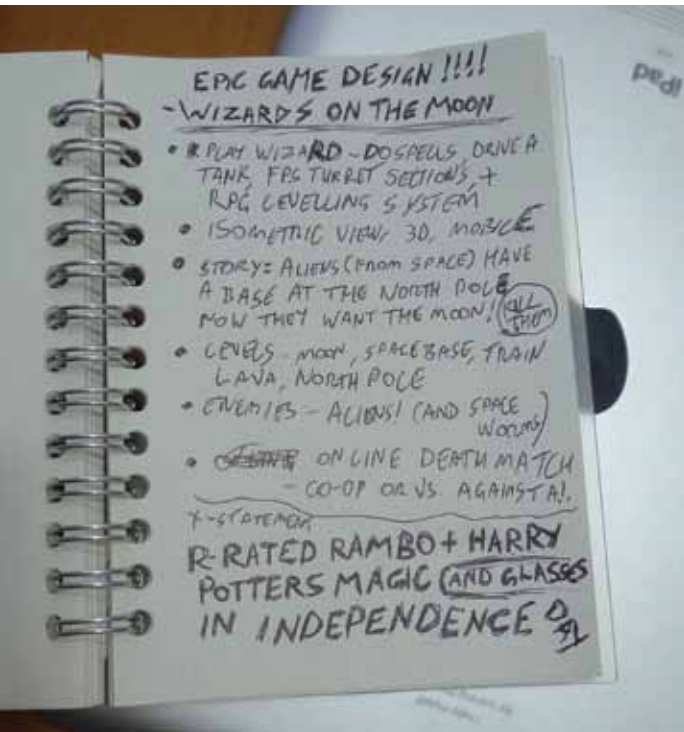 EPIC GAME DESIGN !!!!
- WIZARDS ON THE MOON
• PLAY WIZARD - DO SPELLS, DRIVE A
TANK, FPS TURRET SECTIONS, +
RPG LEVELLING SYSTEM
• ISOMETRIC VIEW, 3D, MOBILE
• STORY: ALIENS (FROM SPACE) HAVE
A BASE AT THE NORTH POLE
NOW THEY WANT THE MOON! KILL
THEM
• LEVELS - MOON, SPACEBASE, TRAIN
LAVA, NORTH POLE
• ENEMIES - ALIENS! (AND SPACE
WORMS)
• ONLINE DEATHMATCH
- CO-OP OR VS. AGAINST A.I.
X-STATEMENT
R-RATED RAMBO + HARRY
POTTERS MAGIC (AND GLASSES
IN INDEPENDENCE DAY
iPad